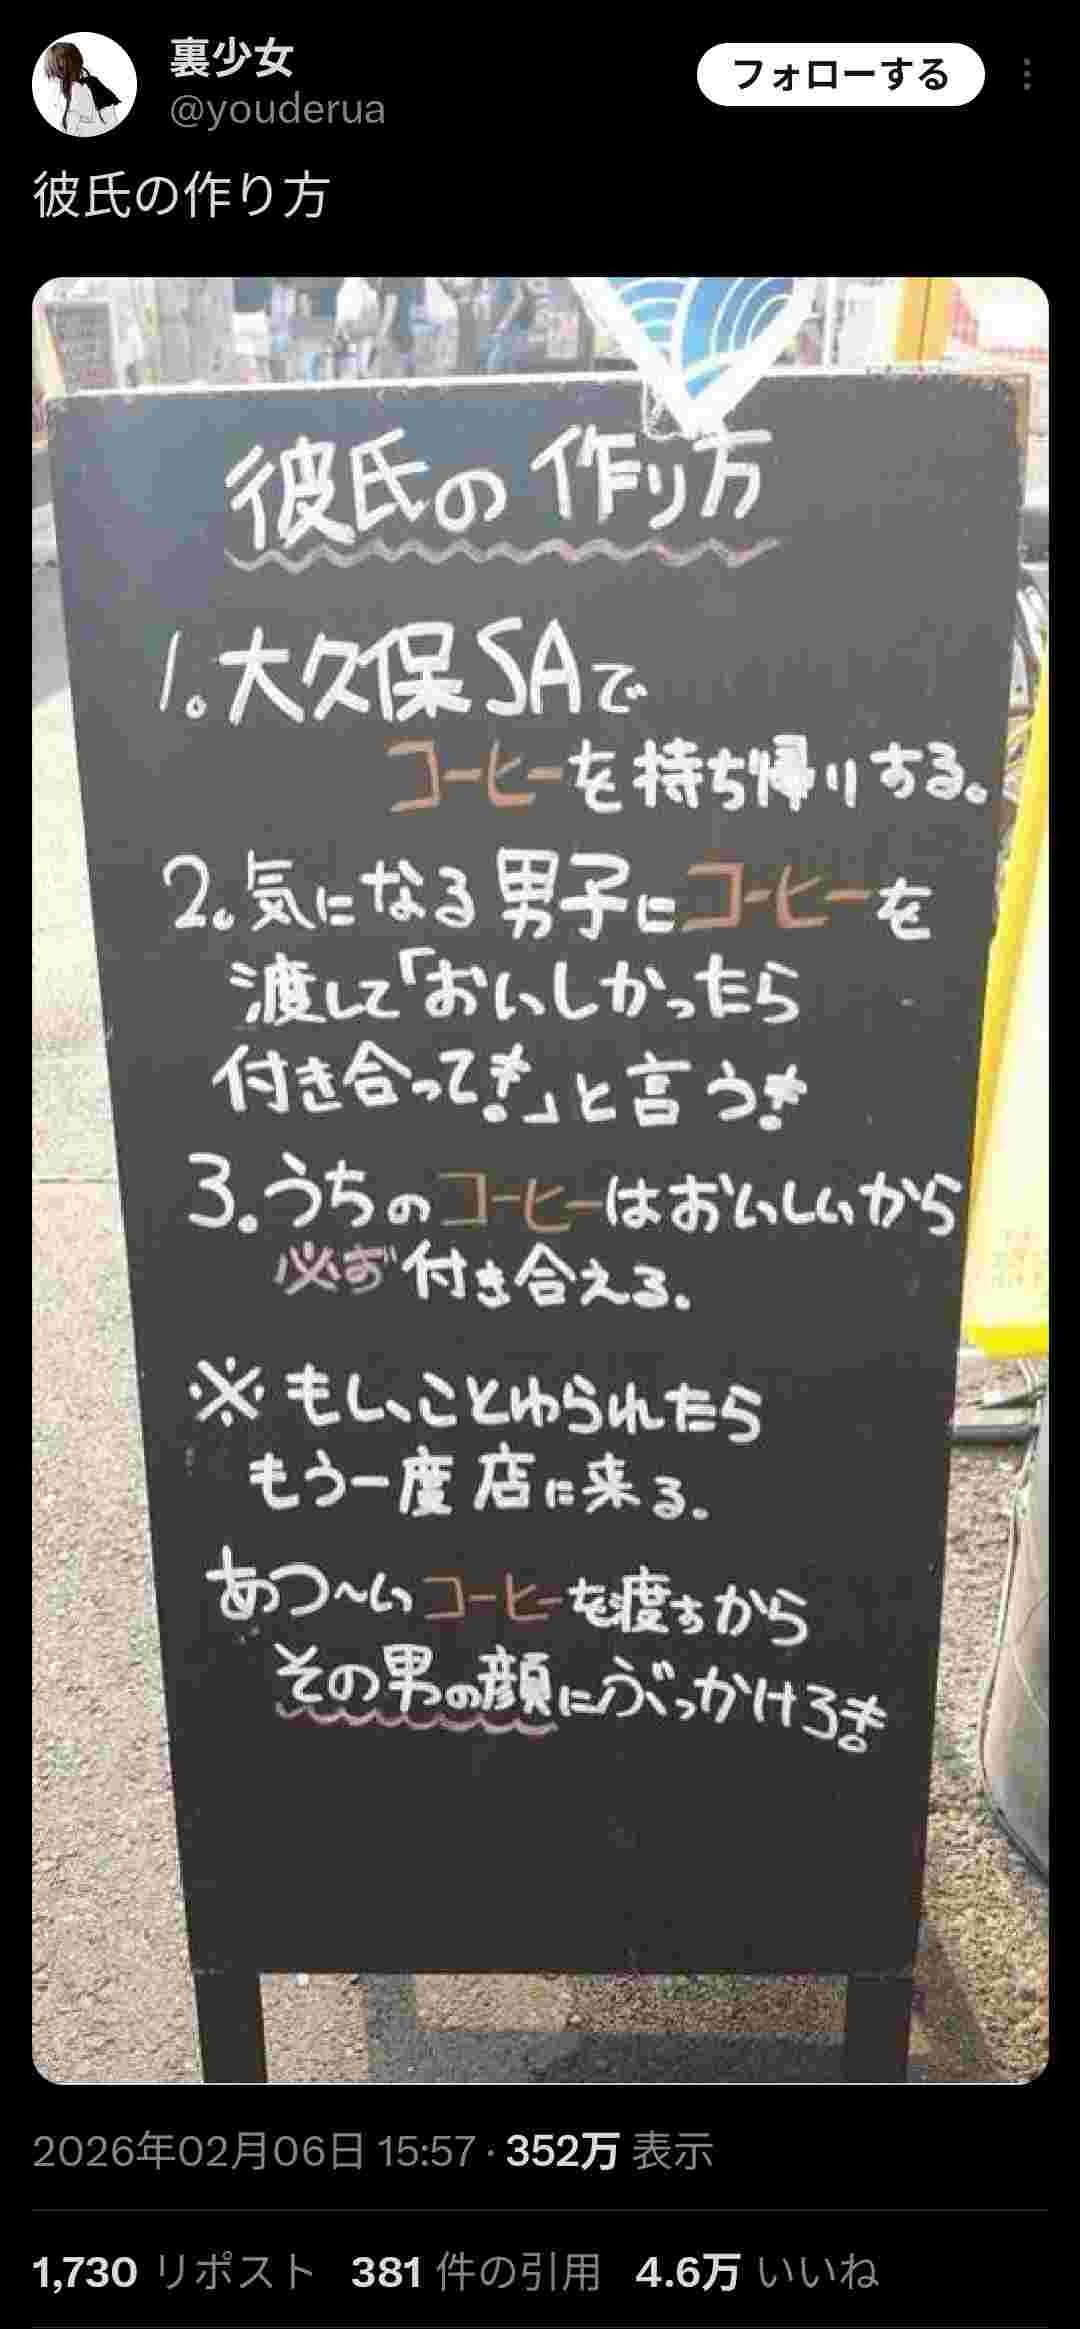 裏少女
@youderua
フォローする
彼氏の作り方
彼氏の作り方
1.大久保SAで
コーヒーを持ち帰りする。
2.気になる男子にコーヒーを
渡して「おいしかったら
付き合って!」と言う!
3.うちのコーヒーはおいしいから
必ず付き合える。
※もし、ことわられたら
もう一度店に来る。
あつ〜いコーヒーを渡すから
その男の顔にぶっかけろ!
2026年02月06日 15:57 · 352万 表示
1,730 リポスト 381 件の引用 4.6万 いいね